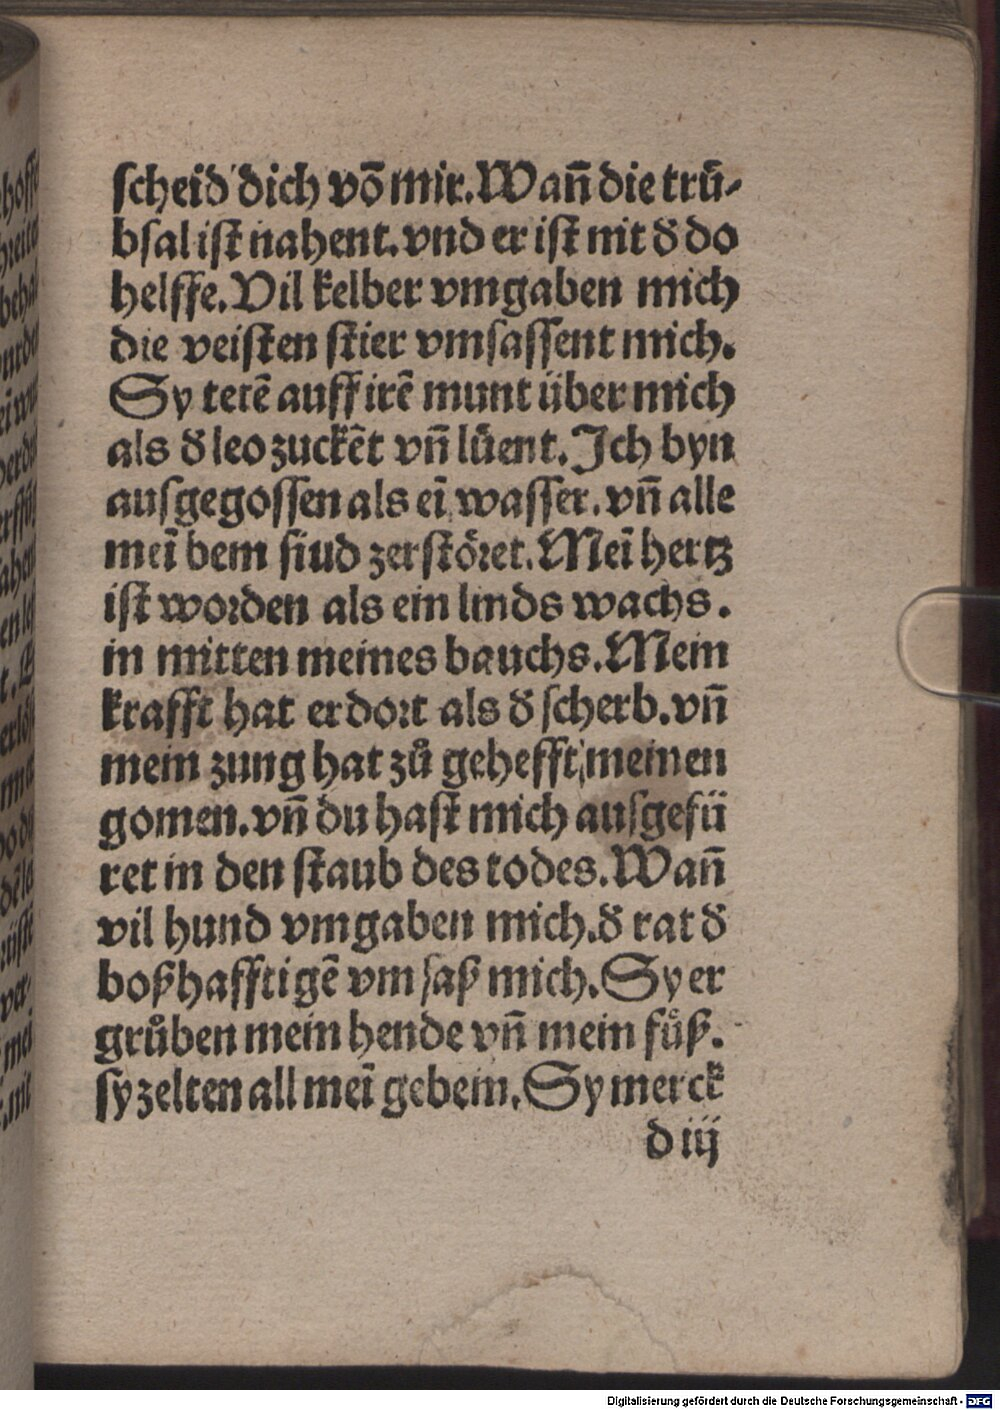 ſcheid dich võ mir. Wañ die trü-
bſal iſt nahent. vnd er iſt nit d̕ do
helffe. Vil kelber vmgaben mich
die veiſten ſtier vmſaſſent mich.
Sy tetẽ auff irẽ munt über mich
als d̕ leo zuckẽt vñ lüent. Ich byn
auſgegoſſen als eĩ waſſer. vñ alle
meĩ bem ſiud zerſtöꝛet. Meĩ hertz
iſt woꝛden als ein linds wachs.
in mitten meines bauchs. Mein
krafft hat erdoꝛt als d̕ ſcherb. vñ
mein zung hat zů gehefft meinen
gomen. vñ du haſt mich auſgefü
ret in den ſtaub des todes. Wañ
vil hund vmgaben mich. d̕ rat d̕
boßhafftigẽ vm ſaß mich. Sy er
grůben mein hende vñ mein fůß.
ſy zelten all meĩ gebein. Sy merck
d iij
Digitalisierung gefördert durch die Deutsche Forschungsgemeinschaft - DFG